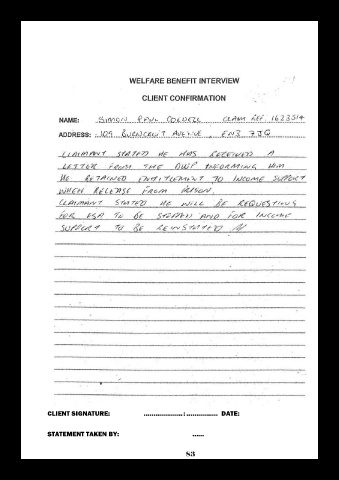 WELFARE BENEFIT INTERVIEW
CLIENT CONFIRMATION
NAME: SIMON PAUL CORDELL CLAIM REF 1623514
ADDRESS: 109 BURNCROFT AVENUE, EN3 7JQ
CLAIMANT STATED HE HAS RECEIVED A
LETTER FROM THE DWP INFORMING HIM
HE RETAINED ENTITLEMENT TO INCOME SUPPORT
WHEN RELEASE FROM PRISON.
CLAIMANT STATED HE WILL BE REQUESTING
FOR ESA TO BE STOPPED AND FOR INCOME
SUPPORT TO BE REINSTATED
CLIENT SIGNATURE: DATE:
STATEMENT TAKEN BY:
83